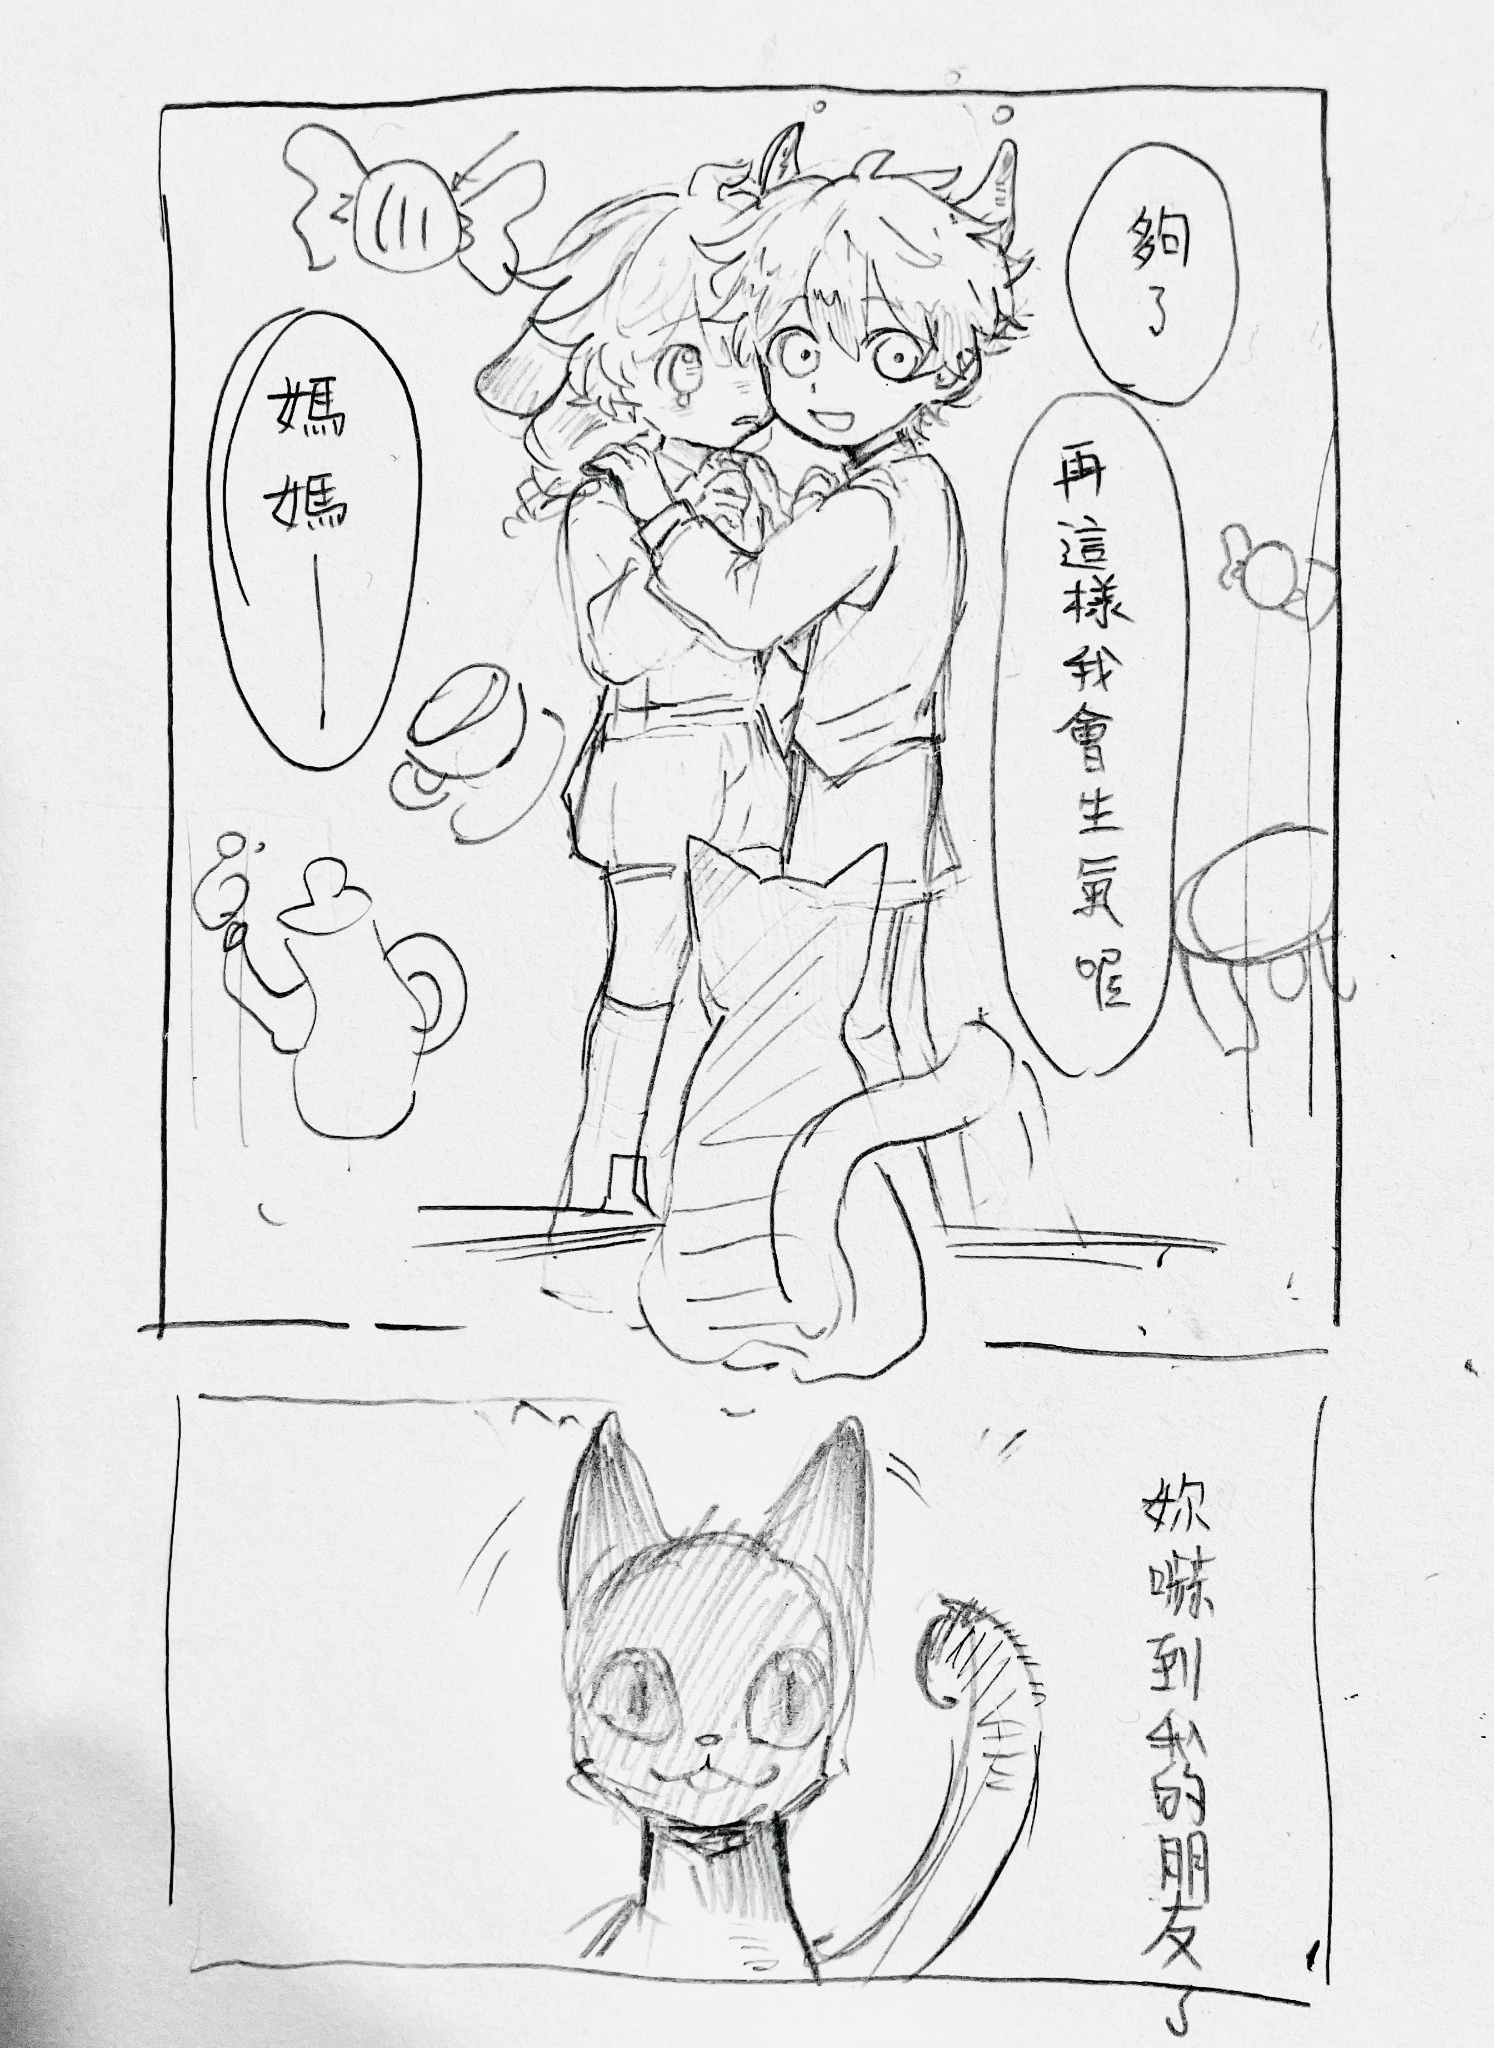 夠了
再這樣我會生氣喔
媽媽—
妳嚇到我的朋友了